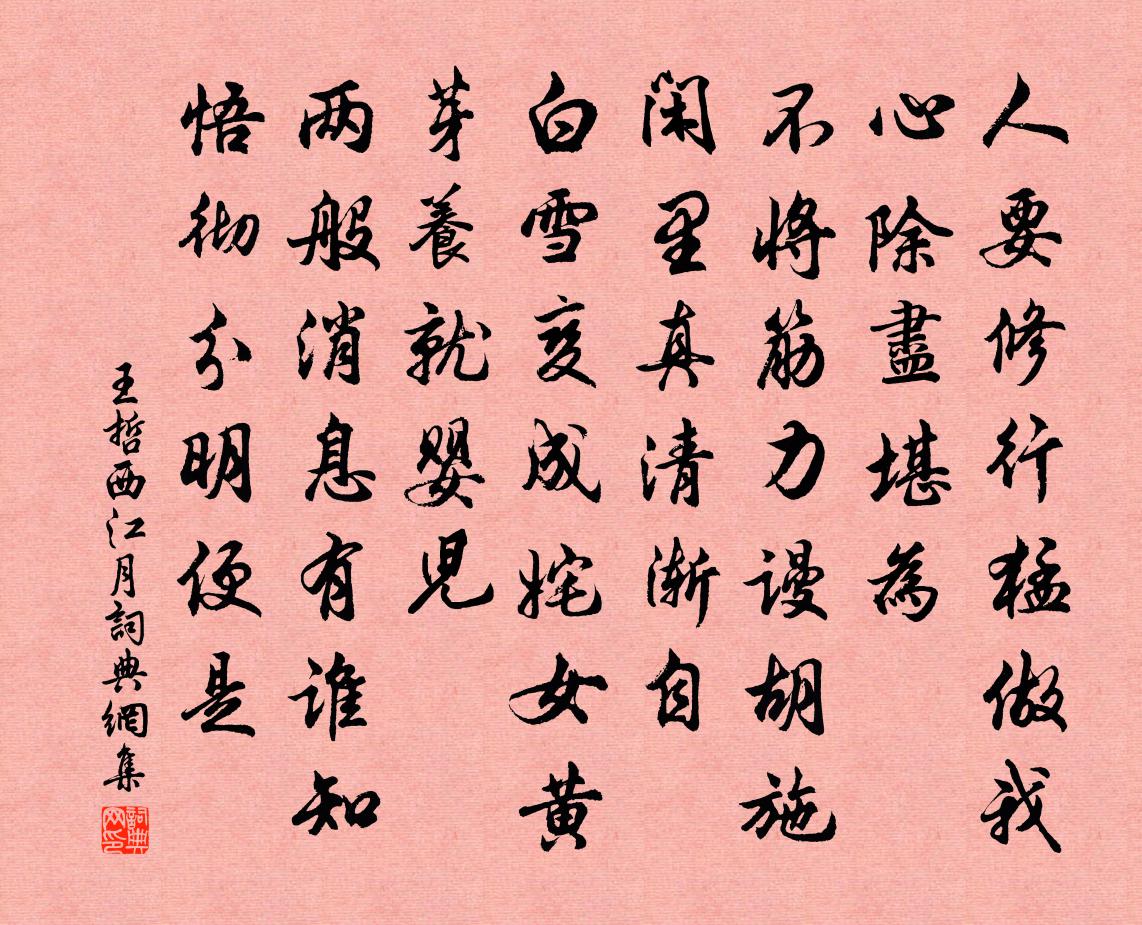 人要修行猛做我
心除盡堪為
不將筋力謾胡施
閑里真清漸自
白雪变成姹女黄
芽養就嬰児
两般消息有谁知
悟彻分明便是
王哲西江月詞典網集
詞典网印